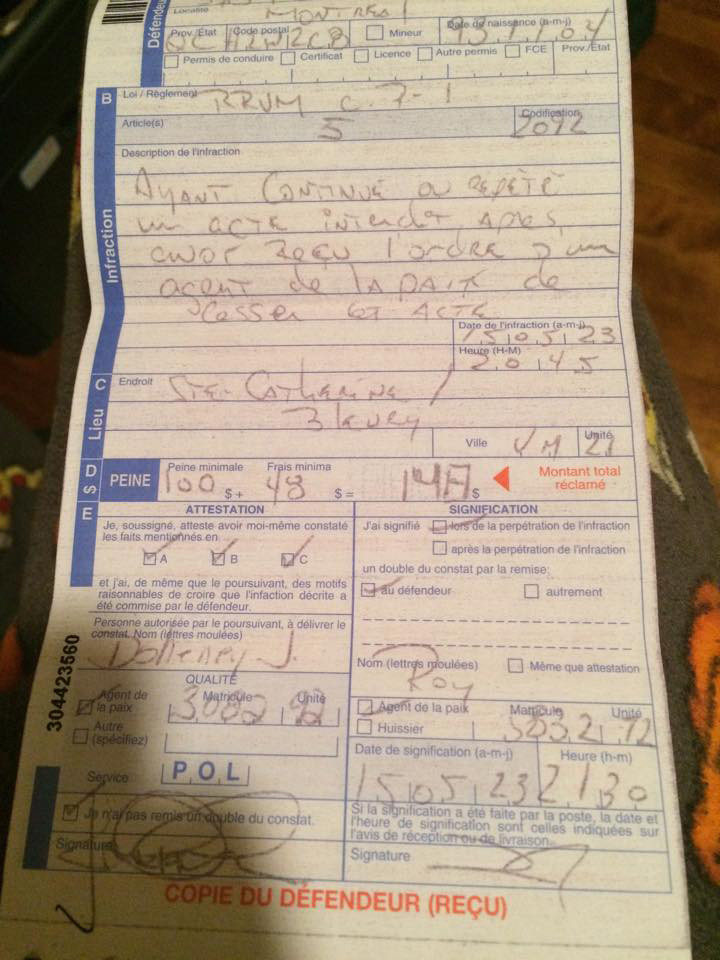 Défendeur
Localité
MONTREAL
Prov./État Code postal Mineur Date de naissance (a-m-j)
QC H2W2C8
Permis de conduire Certificat Licence Autre permis FCE Prov./État
B Loi / Règlement RRVM c. P-1
Article(s) 5 Codification 2092
Infraction
Description de l'infraction
AYANT CONTINUÉ OU RÉPÉTÉ
un ACTE interdit APRÈS,
avoir reçu l'ordre d'un
agent de la paix de
cesser cet ACTE
Date de l'infraction (a-m-j)
15 05 23
Heure (H-M)
20 45
C Endroit STE-CATHERINE /
Lieu
Bleury
Ville VM Unité 21
D $ PEINE Peine minimale 100 $ + Frais minima 48 $ = $ Montant total réclamé
E ATTESTATION
Je, soussigné, atteste avoir moi-même constaté
les faits mentionnés en
A B C
et j'ai, de même que le poursuivant, des motifs
raisonnables de croire que l'infaction décrite a
été commise par le défendeur.
Personne autorisée par le poursuivant, à délivrer le
constat. Nom (lettres moulées)
J.
QUALITÉ
Agent de la paix Matricule Unité
Autre (spécifiez)
Service POL
Je n'ai pas remis un double du constat.
Signature
304423560
SIGNIFICATION
J'ai signifié lors de la perpétration de l'infraction
après la perpétration de l'infraction
un double du constat par la remise:
au défendeur autrement
Nom (lettres moulées) Même que attestation
Roy
Agent de la paix Matricule Unité
Huissier
Date de signification (a-m-j) Heure (h-m)
15 05 23 21 30
Si la signification a été faite par la poste, la date et
l'heure de signification sont celles indiquées sur
l'avis de réception ou de livraison.
Signature
COPIE DU DÉFENDEUR (REÇU)